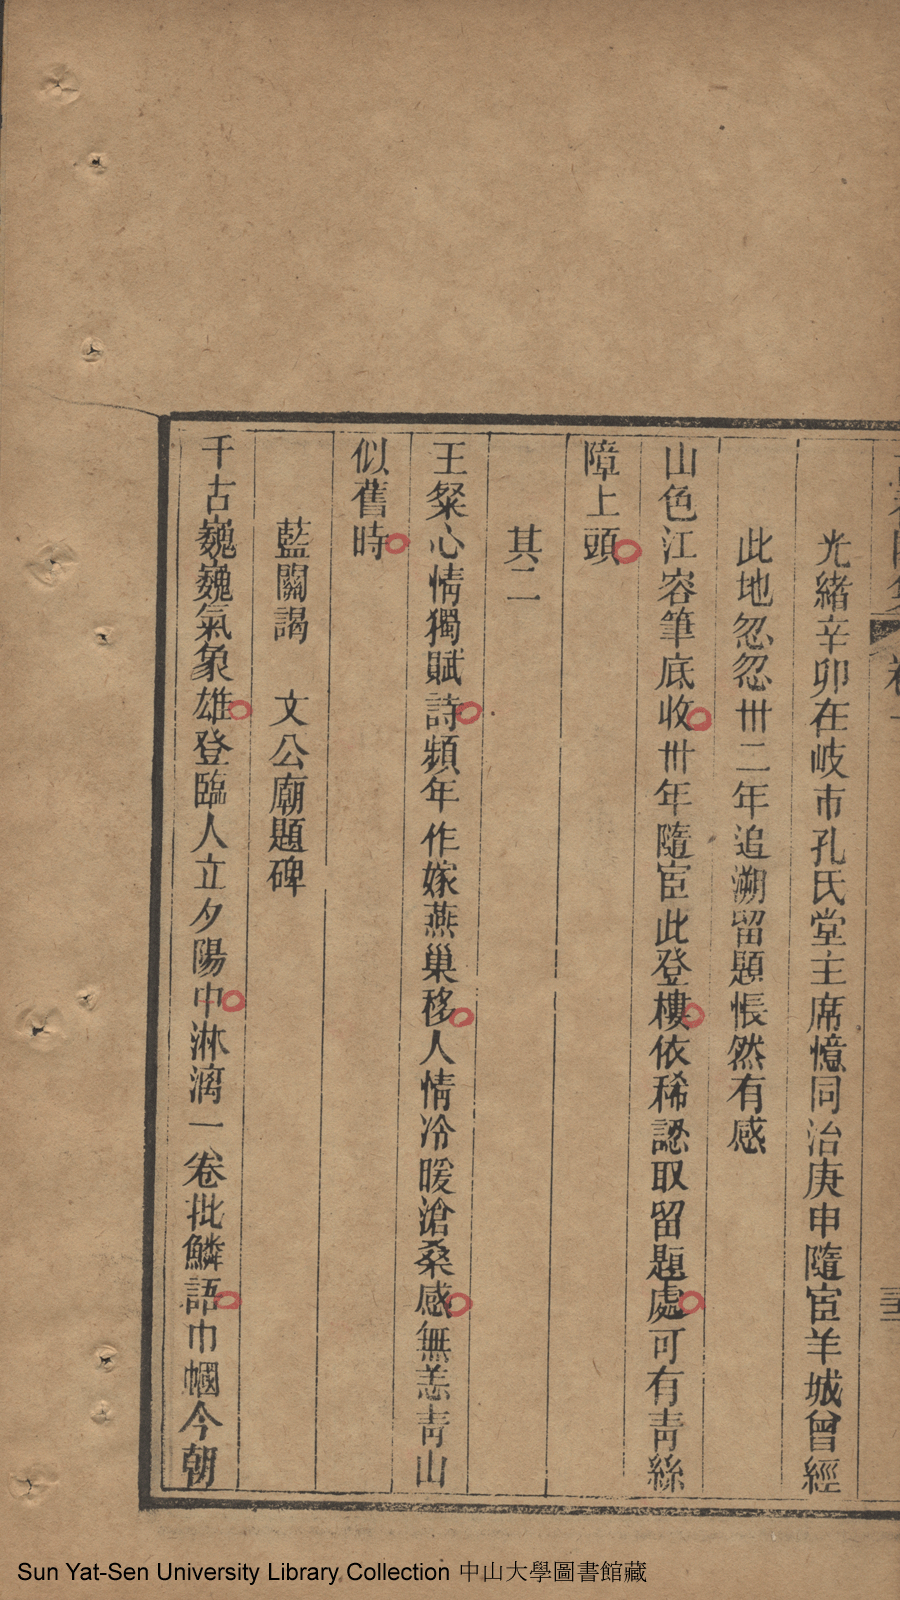 光緒辛卯在岐市孔氏堂主席憶同治庚申隨宦羊城曾經
此地忽忽卅二年追溯留題悵然有感
山色江容筆底收卅年隨宦此登樓依稀認取留題處可有靑絲
障上頭
其二
王粲心情獨賦詩頻年作嫁燕巢移人情冷暖滄桑感無恙靑山
似舊時
藍關謁　文公廟題碑
千古巍巍氣象雄登臨人立夕陽中淋漓一卷批鱗語巾幗今朝
Sun Yat-Sen University Library Collection 中山大學圖書館藏